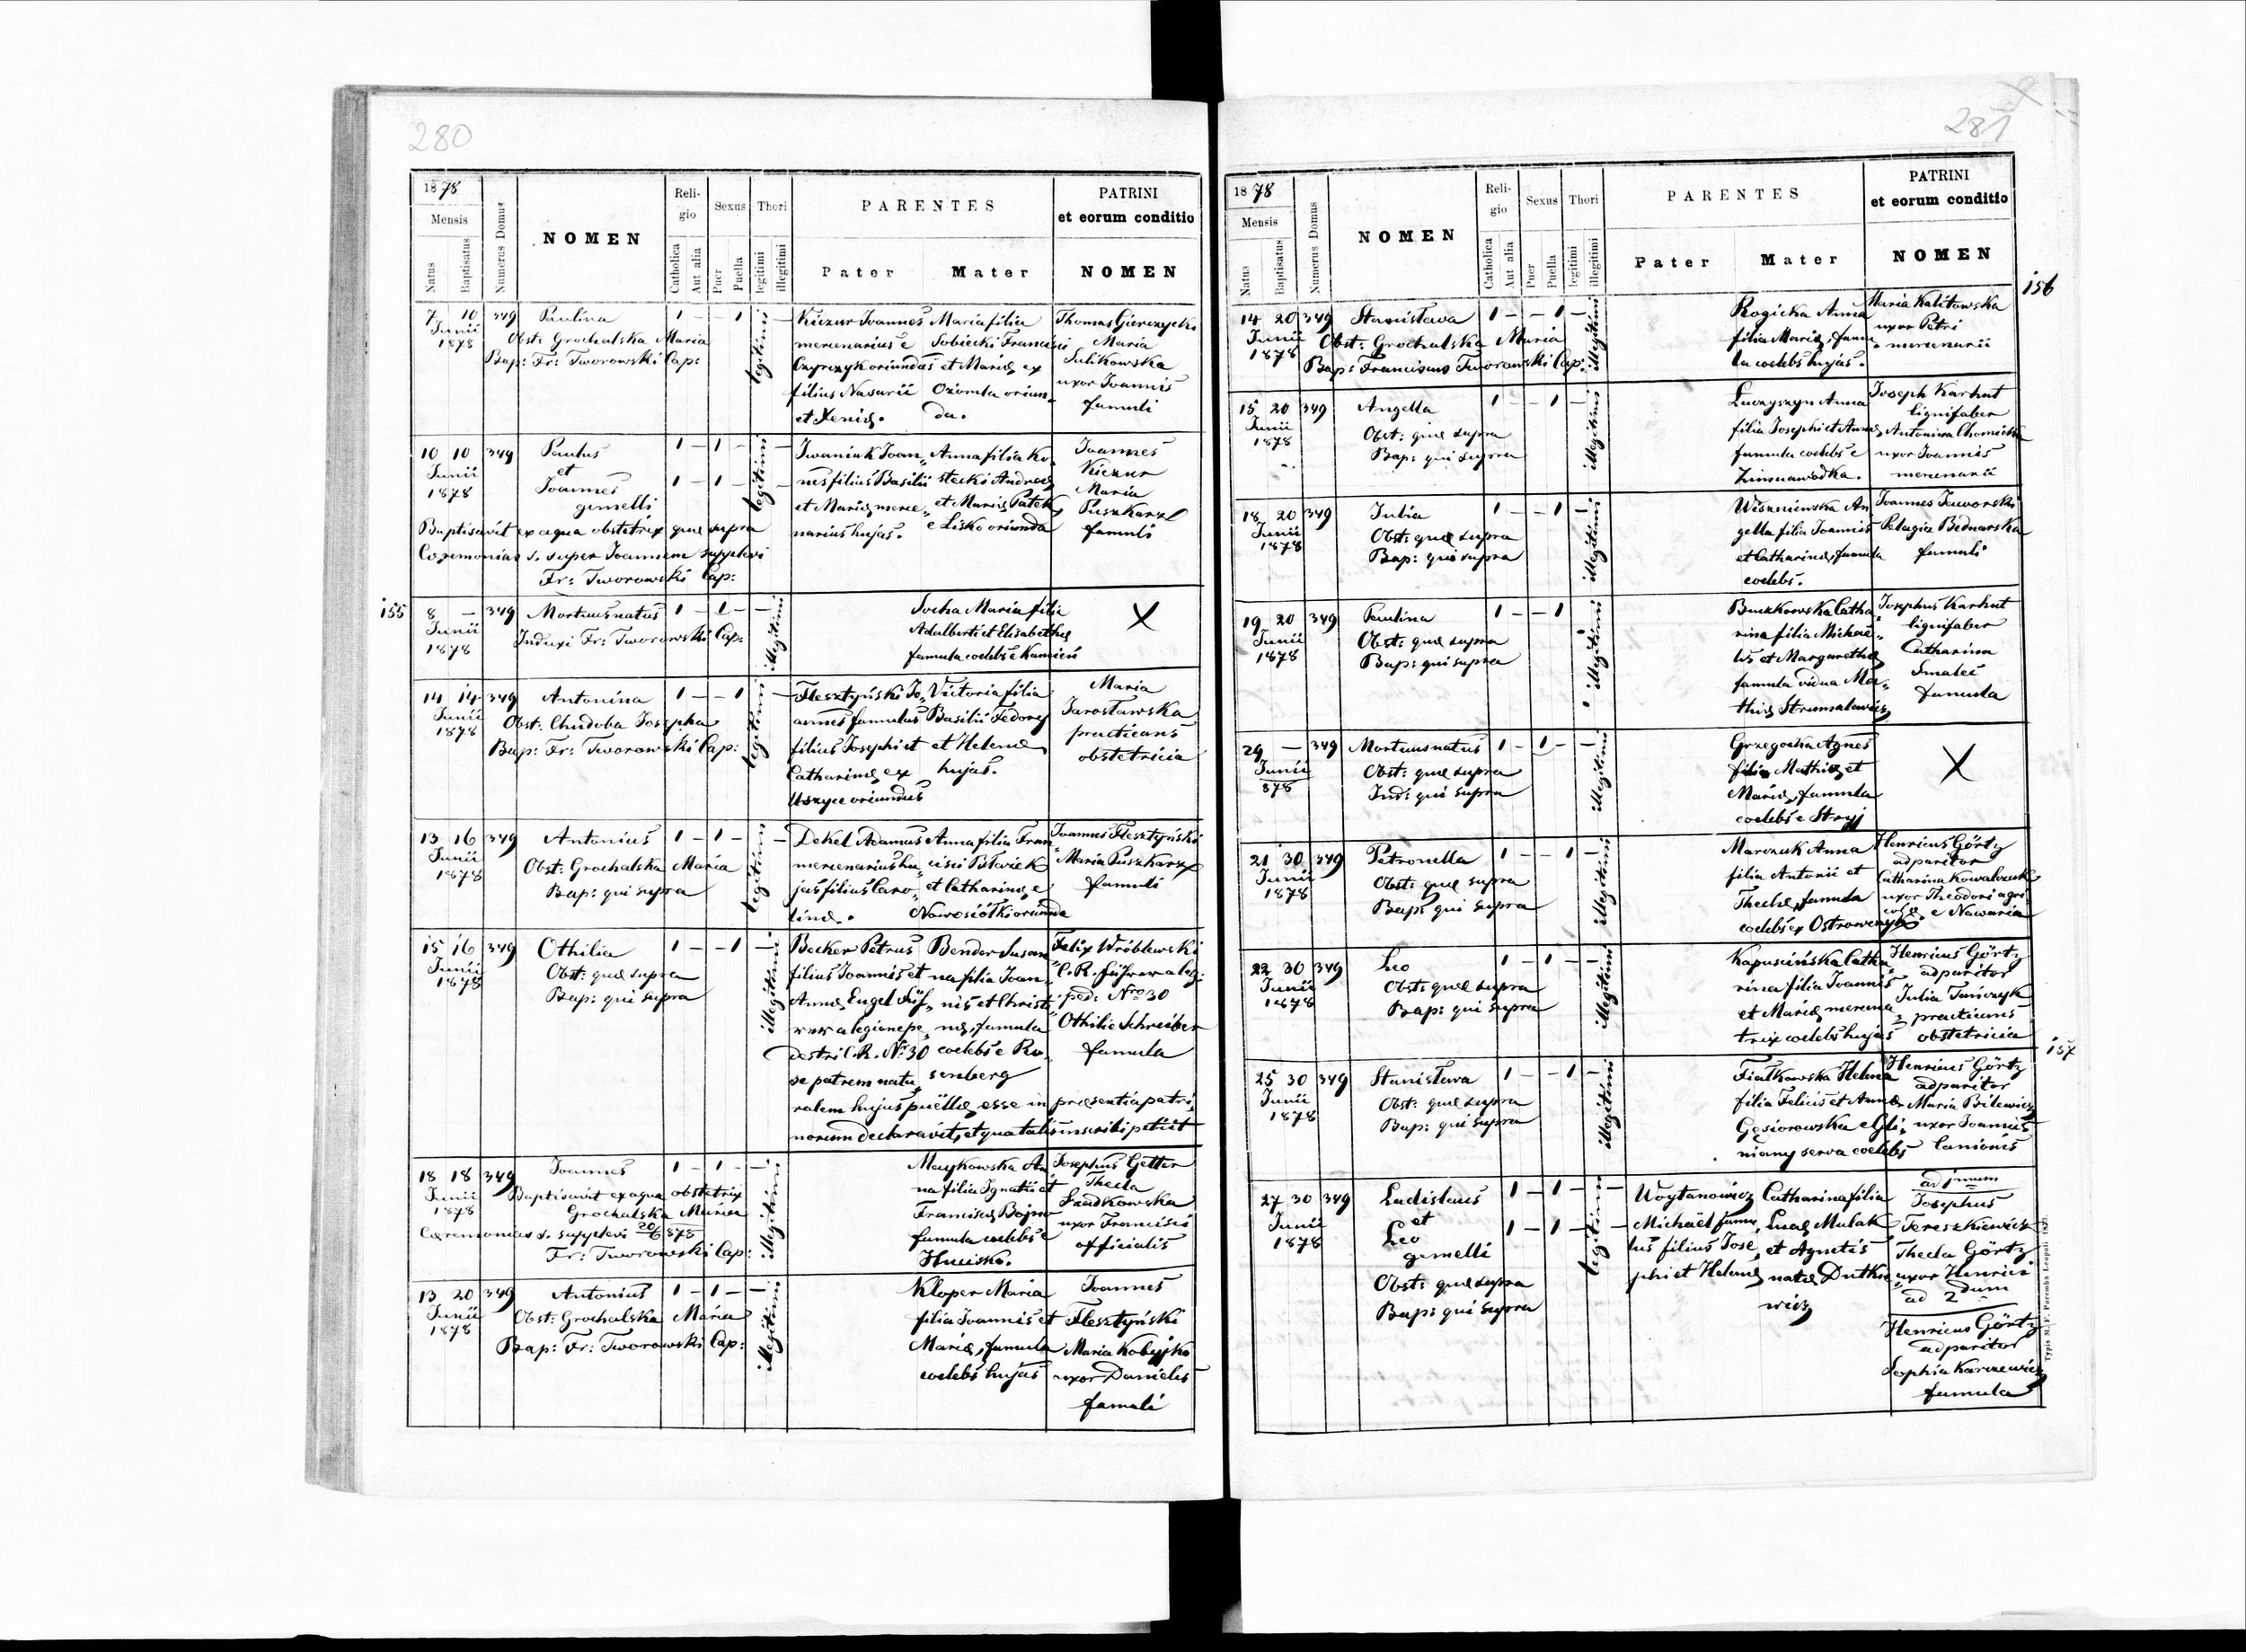 280
1878
Mensis
Natus
Baptisatus
Numerus Domus
NOMEN
Religio
Catholica
Aut alia
Sexus
Puer
Puella
Thori
legitimi
illegitimi
PARENTES
Pater
Mater
PATRINI
et eorum conditio
NOMEN
7 10 349 Paulina 1 – – 1 legitimi –
Junii
1878
Obst: Grochalska Maria
Bap: Fr: Tworowski Cap:
Kiczur Joannes
mercenarius e
oriundus
filius Nasarii
et Xeniæ.
Maria filia
Sobiecki Francisci
et Mariæ ex
Ozomla oriun„
da.
Thomas
Maria
Sulikowska
uxor Joannis
famuli
10 10 349 Paulus 1 – 1 – legitimi –
Junii
1878
et
Joannes 1 – 1 –
gemelli
Baptisavit ex aqua obstetrix quæ supra
Cæremonias s. super Joannem supplevi
Fr: Tworowski Cap:
Iwaniuk Joan„
nes filius Basilii
et Mariæ merce„
narius hujás.
Anna filia Ko„
stecki Andreæ
et Mariæ Patek
e Lisko oriunda
Joannes
Kiczur
Maria
Puszkarz
famuli
155
8 – 349 Mortuus natus 1 – 1 – – illegitimi
Junii
1878
Induxi Fr: Tworowski Cap:
Socha Maria filia
Adalberti et Elisabethæ
famula coelebs e Kamień
X
14 14 349 Antonina 1 – – 1 legitimi –
Junii
1878
Obst: Chudoba Josepha
Bap: Fr: Tworowski Cap:
Flesztyński Jo„
annes famulus
filius Josephi et
Catharinæ ex
Uszyce oriundus
Victoria filia
Basilii Fedory
et Helenæ
hujás.
Maria
Jarosławska
practicans
obstetricia
13 16 349 Antonius 1 – 1 – legitimi –
Junii
1878
Obst: Grochalska Maria
Bap: qui supra
Dekel Adamus
mercenarius hu„
jás filius Caro„
linæ.
Anna filia Fran„
cisci
et Catharinæ e
Nowosiółki oriunda
Joannes Flesztyński
Maria Puszkarz
famuli
15 16 349 Othilia 1 – – 1 – illegitimi
Junii
1878
Obst: quæ supra
Bap: qui supra
Becker Petrus
filius Joannis et
Annæ Engel
a legione pe„
destri C.R. No: 30
se patrem natu„
ralem hujus puellæ esse in præsentia patri„
norum declaravit, et qua talis inscribi petiit
Bender Susan„
na filia Joan„
nis et Christi„
næ, famula
coelebs e Ro„
senberg
Felix Wróblewski
C.R. a leg:
ped: Nro 30
Othilie Schreiber
famula
18 18 349 Joannes 1 – 1 – – illegitimi
Junii
1878
Baptisavit ex aqua obstetrix
Grochalska Maria
Cæremonias s. supplevi 20/6 878
Fr: Tworowski Cap:
Maykowska An
na filia Ignatii et
Franciscæ Bojno
famula coelebs e
Hucisko.
Josephus Getter
Thecla
uxor Francisci
officialis
13 20 349 Antonius 1 – 1 – – illegitimi
Junii
1878
Obst: Grochalska Maria
Bap: Fr: Tworowski Cap:
Kloper Maria
filia Joannis et
Mariæ, famula
coelebs hujás
Joannes
Flesztyński
Maria
uxor Danielis
famuli
281
1878
Mensis
Natus
Baptisatus
Numerus Domus
NOMEN
Religio
Catholica
Aut alia
Sexus
Puer
Puella
Thori
legitimi
illegitimi
PARENTES
Pater
Mater
PATRINI
et eorum conditio
NOMEN
156
14 20 349 Stanisława 1 – – 1 – illegitimi
Junii
1878
Obst: Grochalska Maria
Bap: Franciscus Tworowski Cap:
Rogicka Anna
filia Mariæ, famu„
la coelebs hujás.
Maria Kalitowska
uxor Petri
mercenarii
15 20 349 Angella 1 – – 1 – illegitimi
Junii
1878
Obst: quæ supra
Bap: qui supra
Luczyszyn Anna
filia Josephi et Annæ
famula coelebs e
Zimnawódka.
Joseph Karhut
lignifaber
Antonina Chomicka
uxor Joannis
mercenarii
18 20 349 Julia 1 – – 1 – illegitimi
Junii
1878
Obst: quæ supra
Bap: qui supra
Wiszniewska An
gella filia Joannis
et Catharinæ, famula
coelebs.
Joannes Jaworski
Pelagia Bednarska
famuli
19 20 349 Paulina 1 – – 1 – illegitimi
Junii
1878
Obst: quæ supra
Bap: qui supra
Buczkowska Catha
rina filia Michaë„
lis et Margarethæ
famula vidua Ma„
thiæ Strumalewicz
Josephus Karhut
lignifaber
Catharina
Smaleć
famula
29 – 349 Mortuus natus 1 – 1 – – illegitimi
Junii
878
Obst: quæ supra
Ind: qui supra
Grzegocka Agnes
filia Mathiæ et
Mariæ, famula
coelebs e Stryj
X
21 30 349 Petronella 1 – – 1 – illegitimi
Junii
1878
Obst: quæ supra
Bap: qui supra
Marczuk Anna
filia Antonii et
Theclæ, famula
coelebs ex
Henricus Görtz
adparitor
Catharina Kowalczuk
uxor Theodori agri
colæ e Nawaria
22 30 349 Leo 1 – 1 – – illegitimi
Junii
1878
Obst: quæ supra
Bap: qui supra
Kapuscińska Catha„
rina filia Joannis
et Mariæ mercena„
trix coelebs hujás
Henricus Görtz
adparitor
Julia Tańczyk
practicans
obstetricia
157
25 30 349 Stanisława 1 – – 1 – illegitimi
Junii
1878
Obst: quæ supra
Bap: qui supra
Fiałkowska Helena
filia Felicis et Annæ
Gąsiorowska e Gli„
niany serva coelebs
Henricus Görtz
adparitor
Maria Bilewicz
uxor Joannis
lanionis
27 30 349 Ladislaus 1 – 1 – legitimi –
Junii
1878
et
Leo 1 – 1 –
gemelli
Obst: quæ supra
Bap: qui supra
Woytanowicz
Michaël famu„
lus filius Jose„
phi et Helenæ
Catharina filia
Lucæ Mulak
et Agnetis
natæ Dutkie„
wicz
ad 1mum
Josephus
Tereszkiewicz
Thecla Görtz
uxor Henrici
ad 2dum
Henricus Görtz
adparitor
Sophia Karczewicz
famula